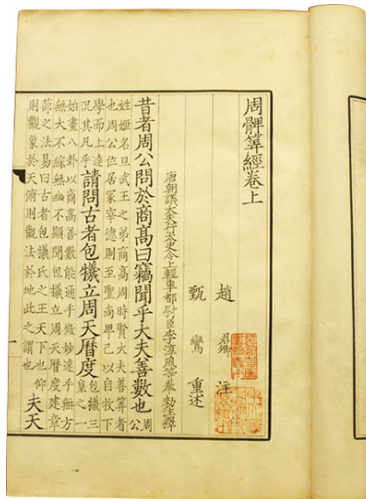 周髀筭經卷上
趙 君卿 注
甄 鸞 重述
唐朝議大夫行太史令上輕車都尉臣李淳風等奉勅注釋
昔者周公問於商高曰竊聞乎大夫善數也周公
姓姬名旦武王之弟商高周時賢大夫善筭者
也周公位居冢宰德則至聖尚卑己以自牧下
學而上達
況其凡乎
請問古者包犧立周天曆度
包犧三
皇之一
始畫八卦以商高善數能通乎微妙達乎無方
無大不綜無幽不顯聞包犧立周天曆度建章
蔀之法易曰古者包犧氏之王天下也仰
則觀象於天俯則觀法於地此之謂也
夫天
一